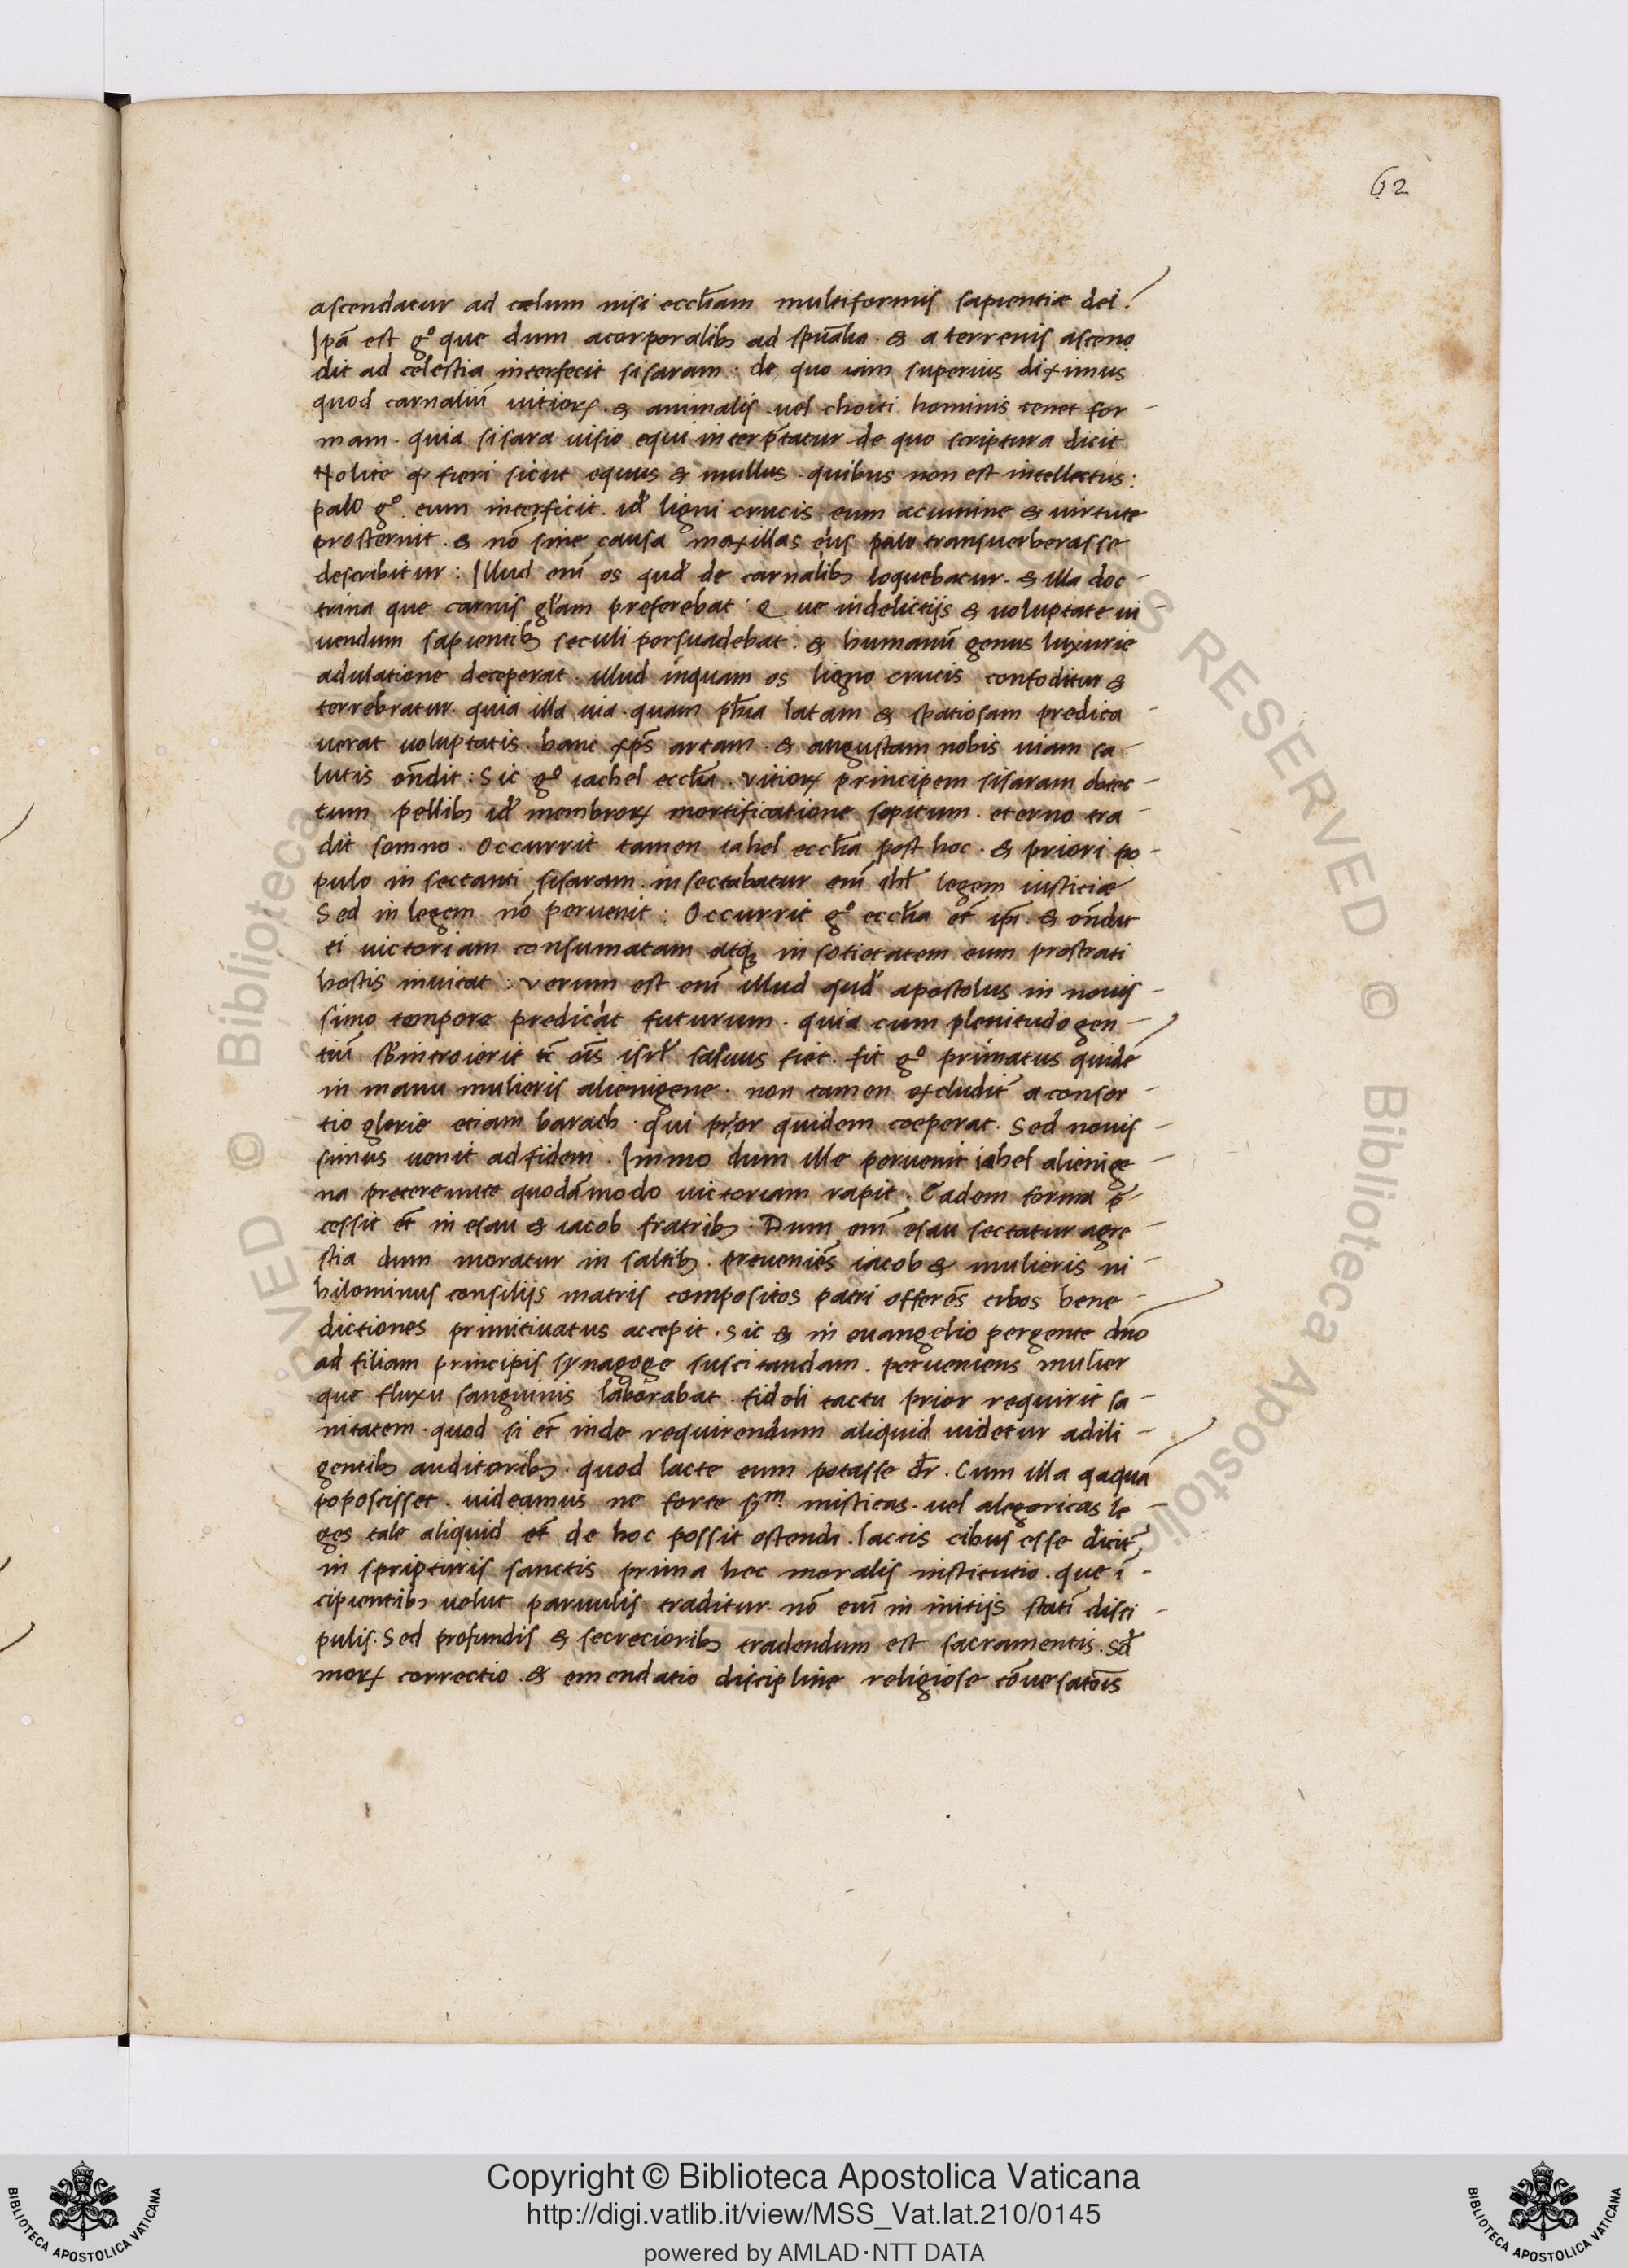 62
ascendatur ad cælum nisi eccl̄iam multiformis sapientiæ dei?
Ip̄a est g° que dum a corporalib; ad sp̄ualia. & a terrenis ascen
dit ad celestia interfecit sisaram. de quo iam superius diximus
quod carnaliū uitioꝝ. & animalis. uel choici hominis tenet for-
mam. quia sisara uisio equi interp̄tatur de quo scriptura dicit
Nolite fieri sicut equus & mullus. quibus non est intellectus:
palo g°. eum interficit. id̄ ligni crucis eum acumine & uirtute
prosternit. & nō sine causa maxillas eius palo transuerberasse
describitur: Illud eni̅ os qud̄ de carnalib; loquebatur. & illa doc-
trina que carnis gl̄am preferebat: Que in delictijs & uoluptate ui-
uendum sapientib; seculi persuadebat: & humanū genus luxurie
adulatione deceperat. illud inquam os ligno crucis confoditur &
terrebratur. quia illa uia. quam ph̄ia latam & spatiosam predica-
uerat uoluptatis. hanc xp̄s artam. & angustam nobis uiam sa-
lutis on̄dit: Sic g° iachel eccl̄ia. vitioꝝ principem sisaram dotec-
tum pellib; id̄ membroꝝ mortificatione sopitum. eterno tra-
dit somno. Occurrit tamen iahel eccl̄ia post hoc. & priori po-
pulo insectanti sisaram. insectabatur eni̅ isrl̄ legem iusticiæ
Sed in legem nō peruenit: Occurrit g° eccl̄ia et̄ ip̄i. & on̄dit
ei uictoriam consumatam atq; in sotietatem eum prostrati
hostis inuitat: verum est eni̅ illud qud̄ apostolus in nouis-
simo tempore predicat futurum. quia cum plenitudo gen-
tiū sb̄introierit tc̄ ois̄ isrl̄ saluus fiet. fit g° primatus quidē
in manu mulieris alienigene. non tamen excludit̄ a consor-
tio glorie etiam barach. qui prior quidem coeperat. Sed nouis-
simus uenit ad fidem. Immo dum ille peruenit iahel alienige-
na pretereunte quodāmodo uictoriam rapit. Eadem forma p̄-
cessit et̄ in esau & iacob fratrib;. Dum eni̅ esau sectatur agre-
stia dum moratur in saltib;. preueniēs iacob & mulieris ni-
hilominus consilijs matris compositos patri offerēs cibos bene-
dictiones primitiuatus accepit. sic & in euangelio pergente dn̄o
ad filiam principis synagoge suscitandam. perueniens mulier
que fluxu sanguinis laborabat. fideli tactu prior requirit sa-
nitatem. quod si et̄ inde requirendum aliquid uidetur adili-
gentib; auditorib;. quod lacte eum potasse dr̄. Cum illa aquā
poposcisset. uideamus ne forte sm̄ misticas. uel alegoricas le-
ges tale aliquid et̄ de hoc possit ostendi. lactis cibus esse dicit̄
in spripturis sanctis prima hec moralis institutio. que ī-
cipientib; uelut paruulis traditur. nō eni̅ in initijs statī disci-
pulis. Sed profundis & secreciorib; tradendum est sacramentis. sd̄
moꝝ correctio. & emendatio discipline religiose cōuersatōis
Copyright © Biblioteca Apostolica Vaticana
http://digi.vatlib.it/view/MSS_Vat.lat.210/0145
powered by AMLAD·NTT DATA
BIBLIOTECA APOSTOLICA VATICANA
BIBLIOTECA APOSTOLICA VATICANA